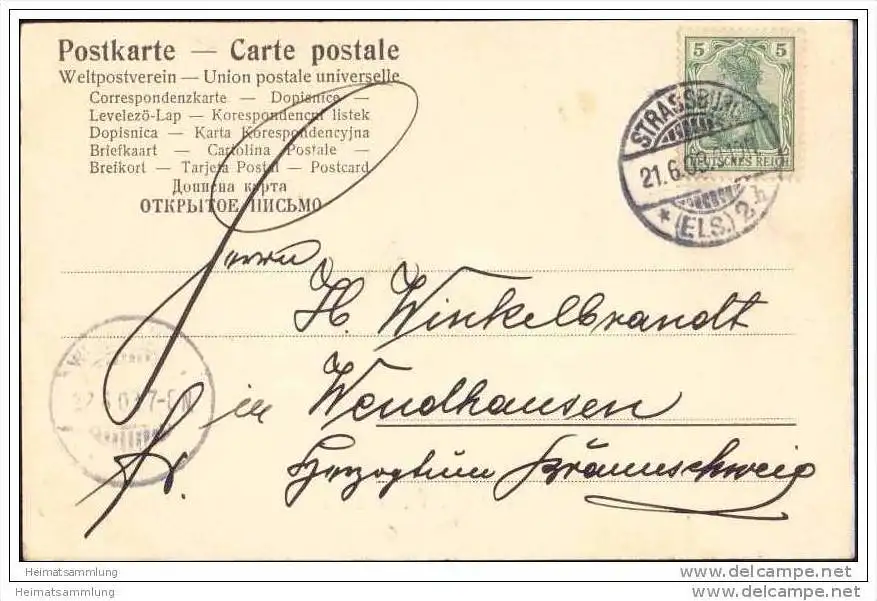 Postkarte — Carte postale
Weltpostverein — Union postale universelle
Correspondenzkarte — Dopisnice —
Levelező-Lap — Korespondenční listek
Dopisnica — Karta Korespondencyjna
Briefkaart — Cartolina Postale —
Breikort — Tarjeta Postal — Postcard
Дописна карта
ОТКРЫТОЕ ПИСЬМО
5 5
DEUTSCHES REICH
STRASSBURG
21.6.
* (ELS.) 2 h
Herrn
H. Winkelbrandt
in Wendhausen
Herzogtum Braunschweig
Fr.
7-8N
Heimatsammlung
Heimatsammlung
www.delcampe.net
www.delcampe.net